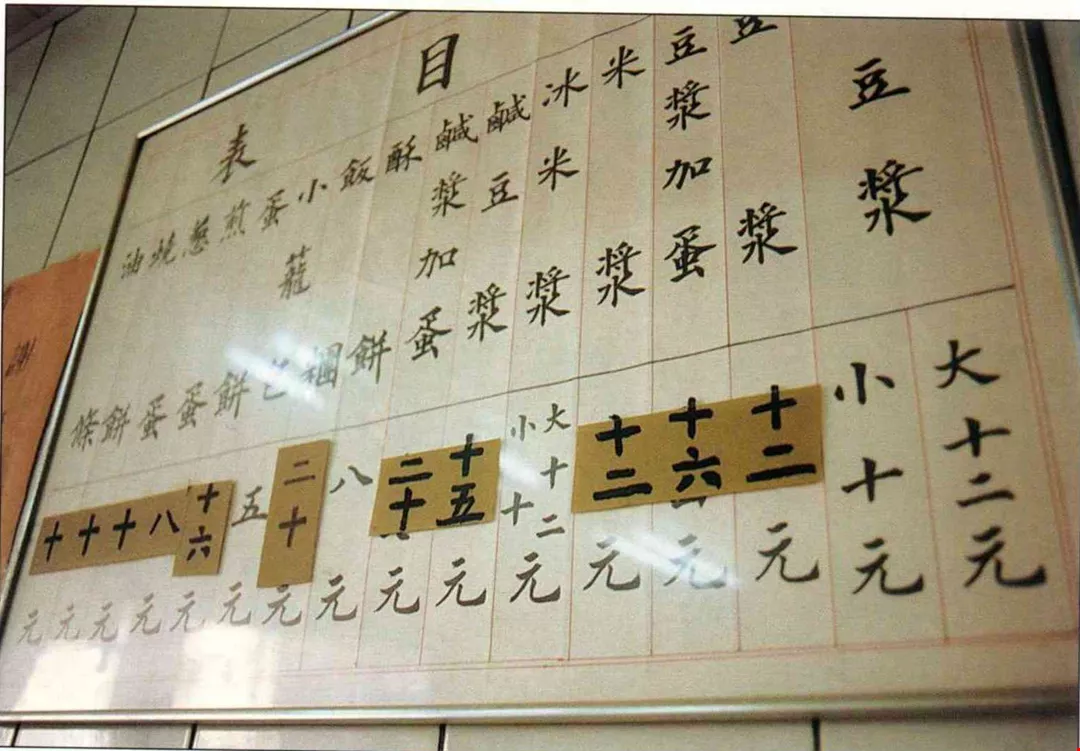 目表
豆漿 大十二元
小十元
豆漿 十二元
豆漿加蛋 十六元
米漿 十二元
冰米漿 大十二 小十 元
鹹豆漿 十五元
鹹漿加蛋 二十元
酥餅 八元
飯糰 二十元
小籠包 五元
蛋餅 十六元
煎蛋 八元
葱蛋 十元
燒餅 十元
油條 十元